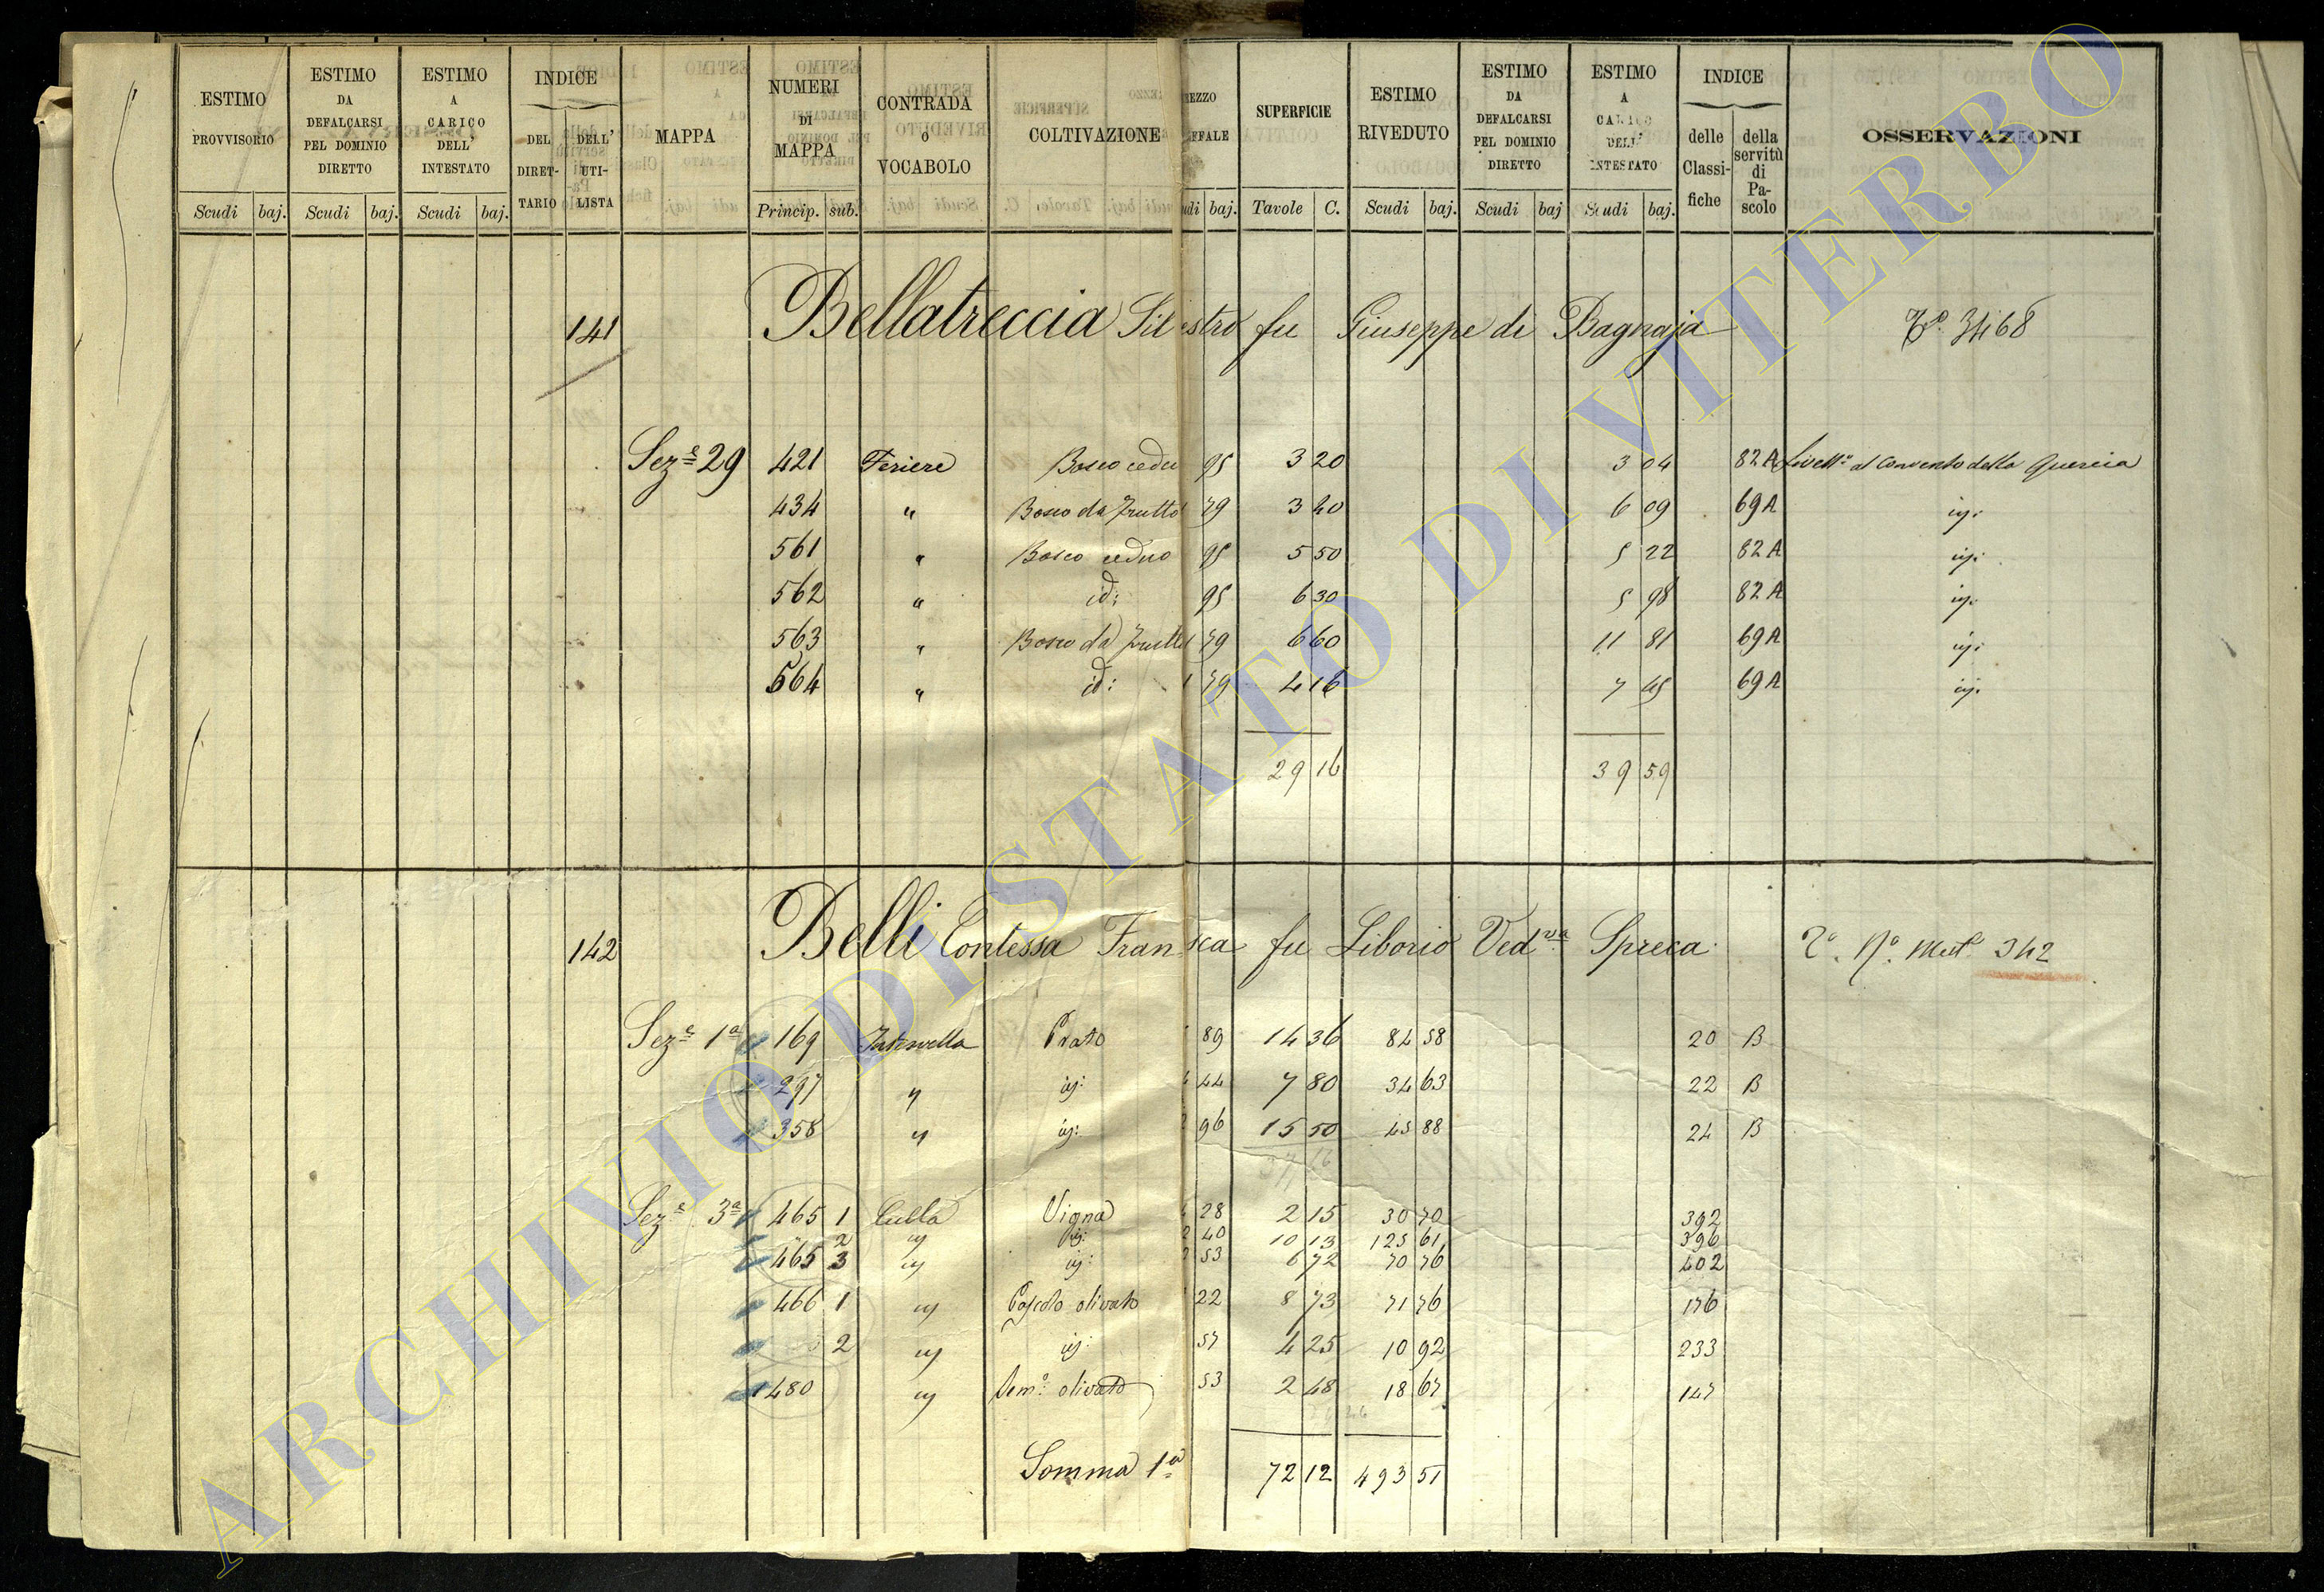 ESTIMO PROVVISORIO | ESTIMO DA DEFALCARSI PEL DOMINIO DIRETTO | ESTIMO A CARICO DELL' INTESTATO | INDICE DEL DIRETTARIO | DELL' UTILISTA | MAPPA | NUMERI DI MAPPA | CONTRADA O VOCABOLO | COLTIVAZIONE | SUPERFICIE | ESTIMO RIVEDUTO | ESTIMO DA DEFALCARSI PEL DOMINIO DIRETTO | ESTIMO A CARICO DELL' INTESTATO | INDICE delle Classifiche | della servitù di Pascolo | OSSERVAZIONI
Scudi baj. Scudi baj. Scudi baj. Princip. sub. baj. Tavole C. Scudi baj. Scudi baj Scudi baj.
141 Bellatreccia Silestro fu Giuseppe di Bagnaja 3468
Sez.e 29 421 Feriere Bosco cedu 95 3 20 3 04 82 A Livell.o al Convento della Quercia
434 " Bosco da frutto 79 3 40 6 09 69 A
561 " Bosco ceduo 95 5 50 5 22 82 A
562 " id: 95 6 30 5 98 82 A
563 " Bosco da frutto 1 79 6 60 11 81 69 A
564 " id: 1 79 4 16 7 45 69 A
29 16 39 59
142 Belli Contessa Fransca fu Liborio Ved.va Spreca 342
Sez.e 1a 169 Prato 89 14 36 84 58 20 B
297 " 44 7 80 34 63 22 B
358 " 96 15 50 45 88 24 B
37 16
Sez.e 3a 465 1 Culla Vigna 28 2 15 30 70 392
2 40 10 13 125 61 396
465 3 53 6 72 70 76 402
466 1 Pascolo olivato 22 8 73 71 76 176
2 57 4 25 10 92 233
480 Sem.o olivato 53 2 48 18 67 147
Somma 1a 72 12 493 51
ARCHIVIO DI STATO DI VITERBO